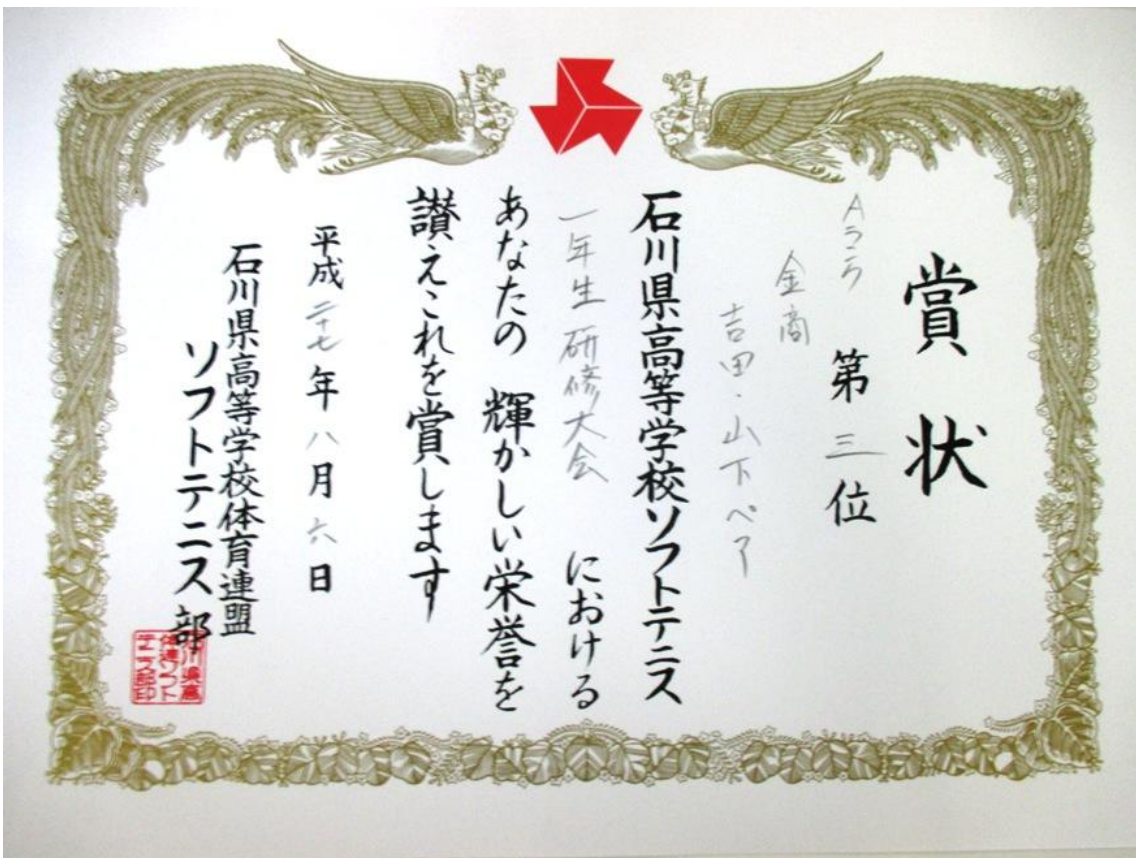 賞状
Aランク
第三位
金商
吉田・山下ペア
石川県高等学校ソフトテニス
一年生研修大会 における
あなたの 輝かしい栄誉を
讃えこれを賞します
平成二十七年八月六日
石川県高等学校体育連盟
ソフトテニス部